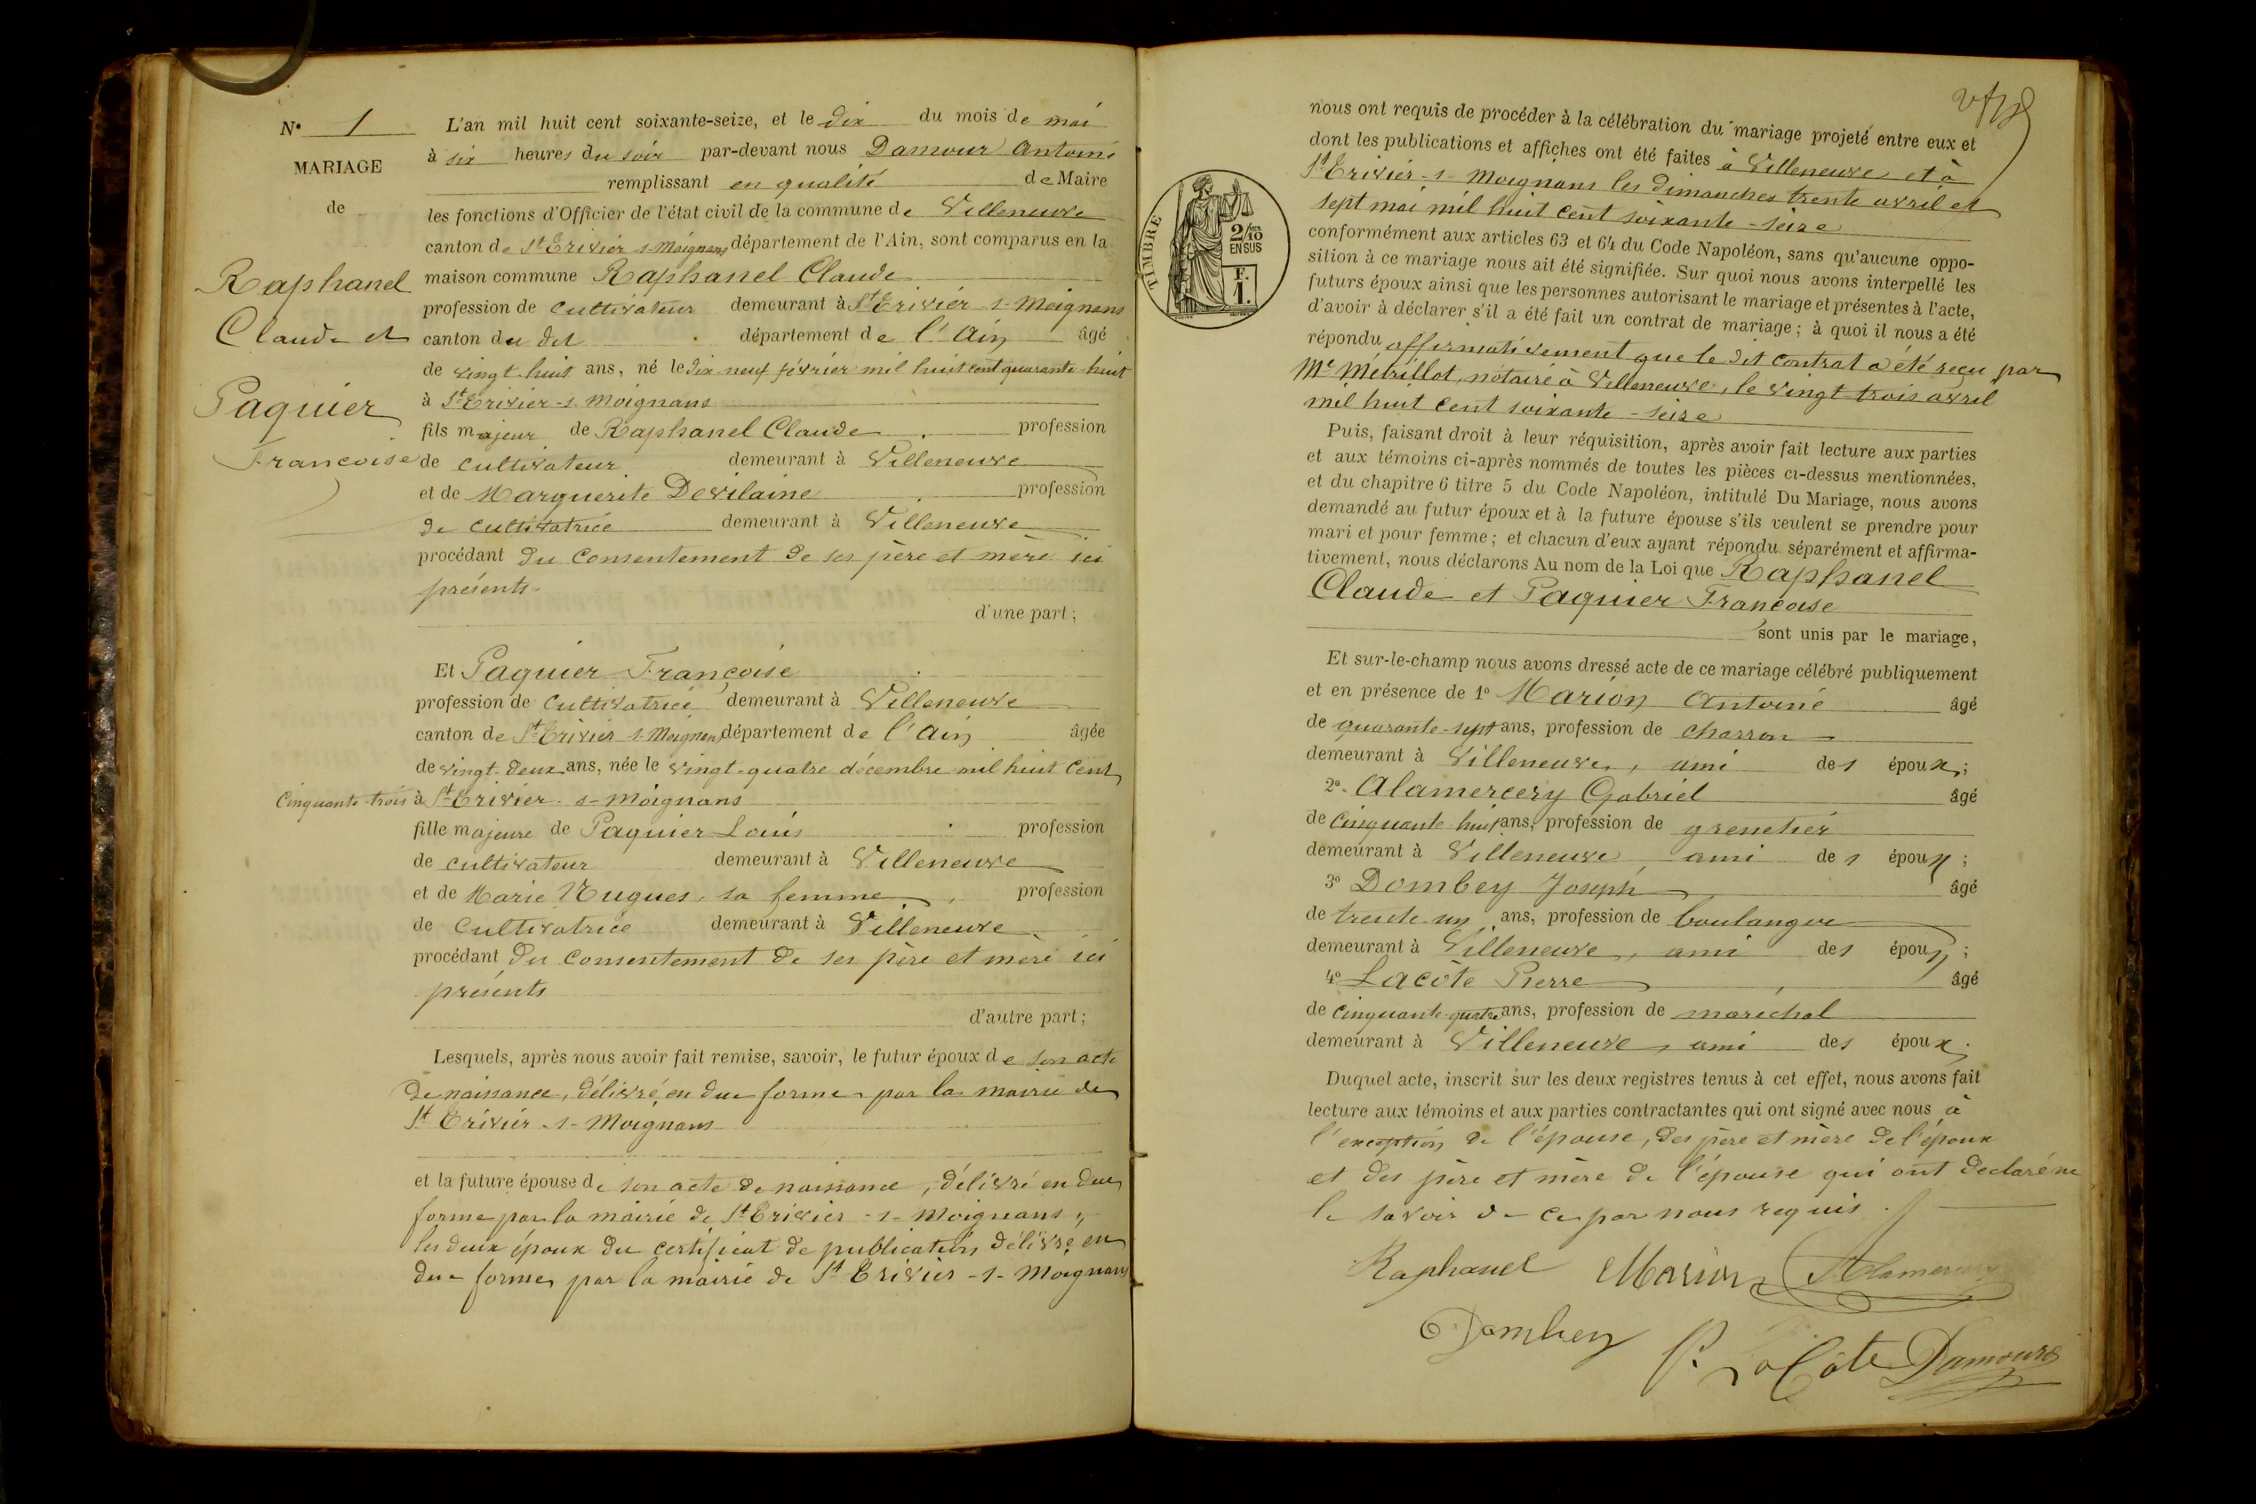 N° 1
MARIAGE
de
Raphanel
Claude et
Paquier
Francoise
L'an mil huit cent soixante-seize, et le dix du mois de mai
à six heures du soir par-devant nous Damour Antoine
remplissant en qualité de Maire
les fonctions d'Officier de l'état civil de la commune de Villeneuve
canton de St Trivier s- Moignans département de l'Ain, sont comparus en la
maison commune Raphanel Claude
profession de cultivateur demeurant à St Trivier s- Moignans
canton du dit département de l'Ain âgé
de vingt-huit ans, né le dix-neuf février mil huit cent quarante-huit
à St Trivier-s- Moignans
fils majeur de Raphanel Claude profession
de cultivateur demeurant à Villeneuve
et de Marguerite Devilaine profession
de cultivatrice demeurant à Villeneuve
procédant du consentement de ses père et mère ici
présents.
d'une part;
Et Paquier Françoise
profession de cultivatrice demeurant à Villeneuve
canton de St Trivier s- Moignans département de l'Ain âgée
de vingt-deux ans, née le vingt-quatre décembre mil huit cent
cinquante-trois à St Trivier-s- Moignans
fille majeure de Paquier Louis profession
de cultivateur demeurant à Villeneuve
et de Marie Nugues, sa femme, profession
de cultivatrice demeurant à Villeneuve
procédant du consentement de ses père et mère ici
présents
d'autre part;
Lesquels, après nous avoir fait remise, savoir, le futur époux de son acte
de naissance, délivré en due forme par la mairie de
St Trivier -s- Moignans
et la future épouse de son acte de naissance, délivré en due
forme par la mairie de St Trivier -s- Moignans,
les deux époux du certificat de publication délivré en
due forme par la mairie de St Trivier -s- Moignans
TIMBRE
2/10
EN SUS
F.
1.
nous ont requis de procéder à la célébration du mariage projeté entre eux et
dont les publications et affiches ont été faites à Villeneuve et à
St Trivier -s- Moignans les dimanches trente avril et
sept mai mil huit cent soixante-seize
conformément aux articles 63 et 64 du Code Napoléon, sans qu'aucune oppo-
sition à ce mariage nous ait été signifiée. Sur quoi nous avons interpellé les
futurs époux ainsi que les personnes autorisant le mariage et présentes à l'acte,
d'avoir à déclarer s'il a été fait un contrat de mariage; à quoi il nous a été
répondu affirmativement que le dit contrat a été reçu par
Me Métrillot, notaire à Villeneuve, le vingt-trois avril
mil huit cent soixante-seize
Puis, faisant droit à leur réquisition, après avoir fait lecture aux parties
et aux témoins ci-après nommés de toutes les pièces ci-dessus mentionnées,
et du chapitre 6 titre 5 du Code Napoléon, intitulé Du Mariage, nous avons
demandé au futur époux et à la future épouse s'ils veulent se prendre pour
mari et pour femme; et chacun d'eux ayant répondu séparément et affirma-
tivement, nous déclarons Au nom de la Loi que Raphanel
Claude et Paquier Francoise
sont unis par le mariage,
Et sur-le-champ nous avons dressé acte de ce mariage célébré publiquement
et en présence de 1° Marion Antoine âgé
de quarante-sept ans, profession de charron
demeurant à Villeneuve, ami des époux;
2° Alamercery Gabriel âgé
de cinquante huit ans, profession de grenetier
demeurant à Villeneuve, ami des époux;
3° Dombey Joseph âgé
de trente-un ans, profession de boulanger
demeurant à Villeneuve, ami des époux;
4° Lacôte Pierre âgé
de cinquante-quatre ans, profession de maréchal
demeurant à Villeneuve, ami des époux.
Duquel acte, inscrit sur les deux registres tenus à cet effet, nous avons fait
lecture aux témoins et aux parties contractantes qui ont signé avec nous à
l'exception de l'épouse, des père et mère de l'époux
et des père et mère de l'épouse qui ont déclaré ne
le savoir de ce par nous requis.
Raphanel Marion Alamercery
Dombey P. LaCôte Damour